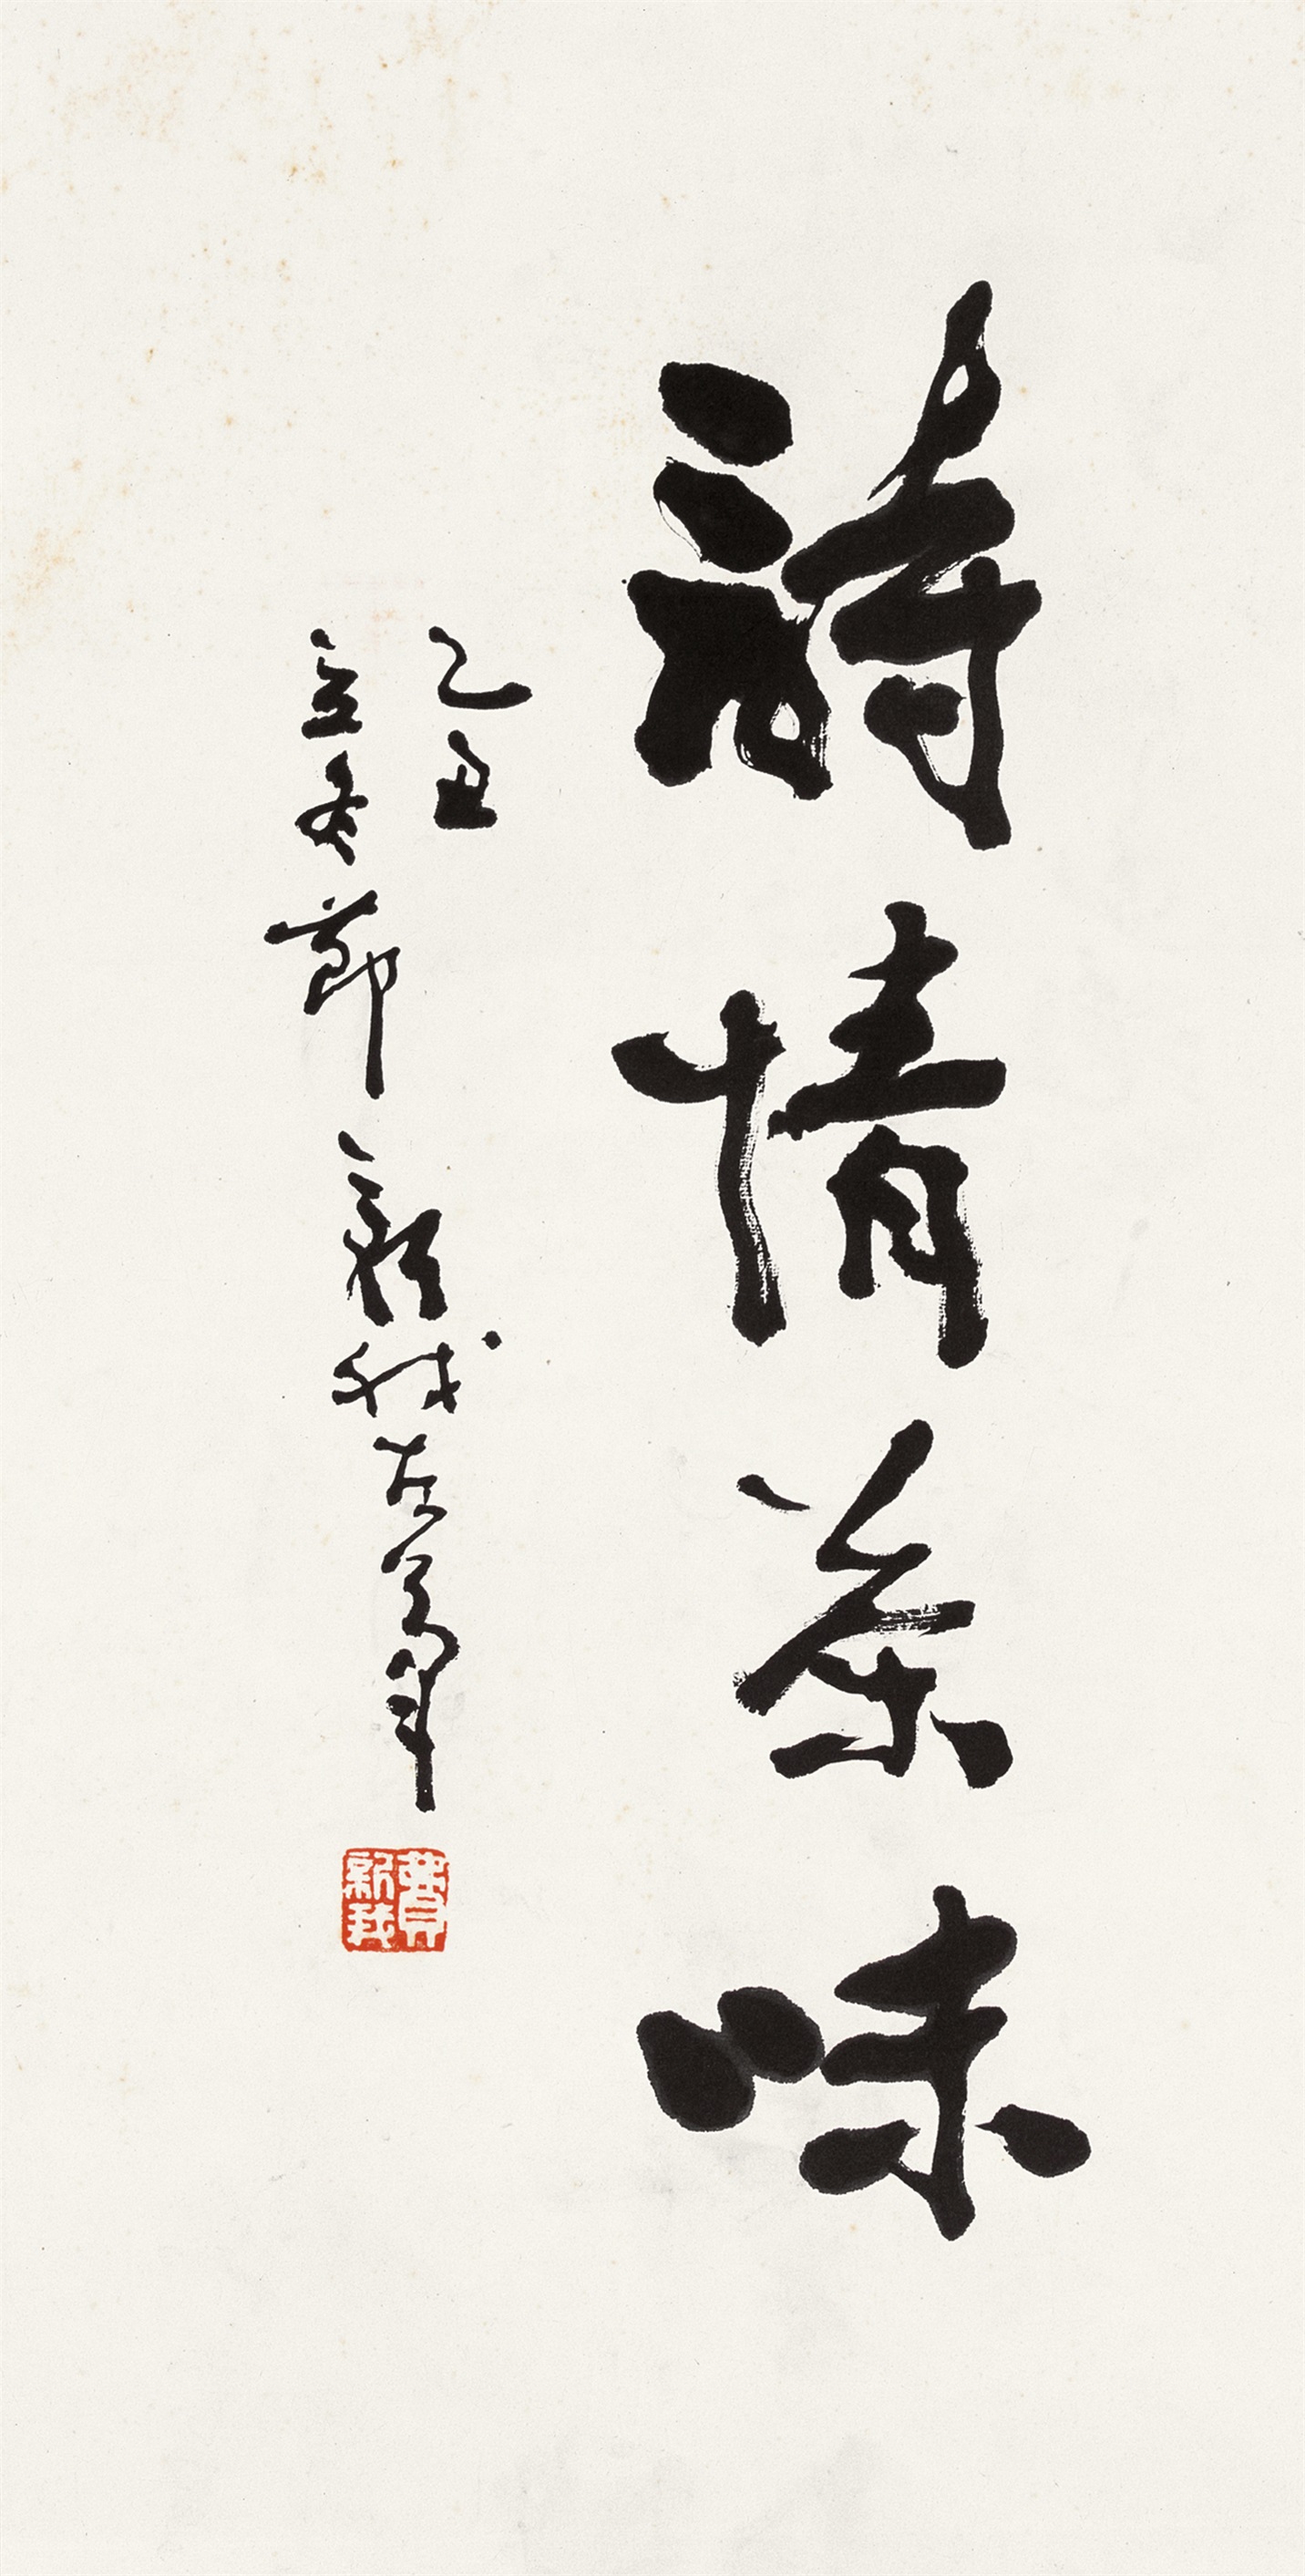 詩情茶味
乙丑
立冬節 新我左筆
費新我